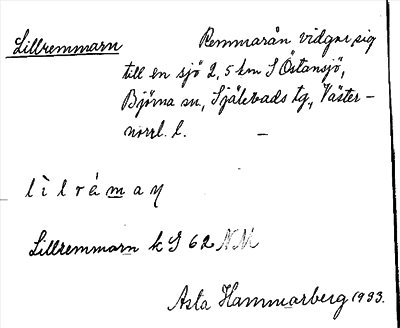 Lillremmarn Remmarån vidgar sig
till en sjö 2,5 km S Östansjö,
Björna sn, Själevads tg, Väster-
norrl. l. —
lìlrémaɳ
Lillremmarn k S 62 NM
Asta Hammarberg 1933.